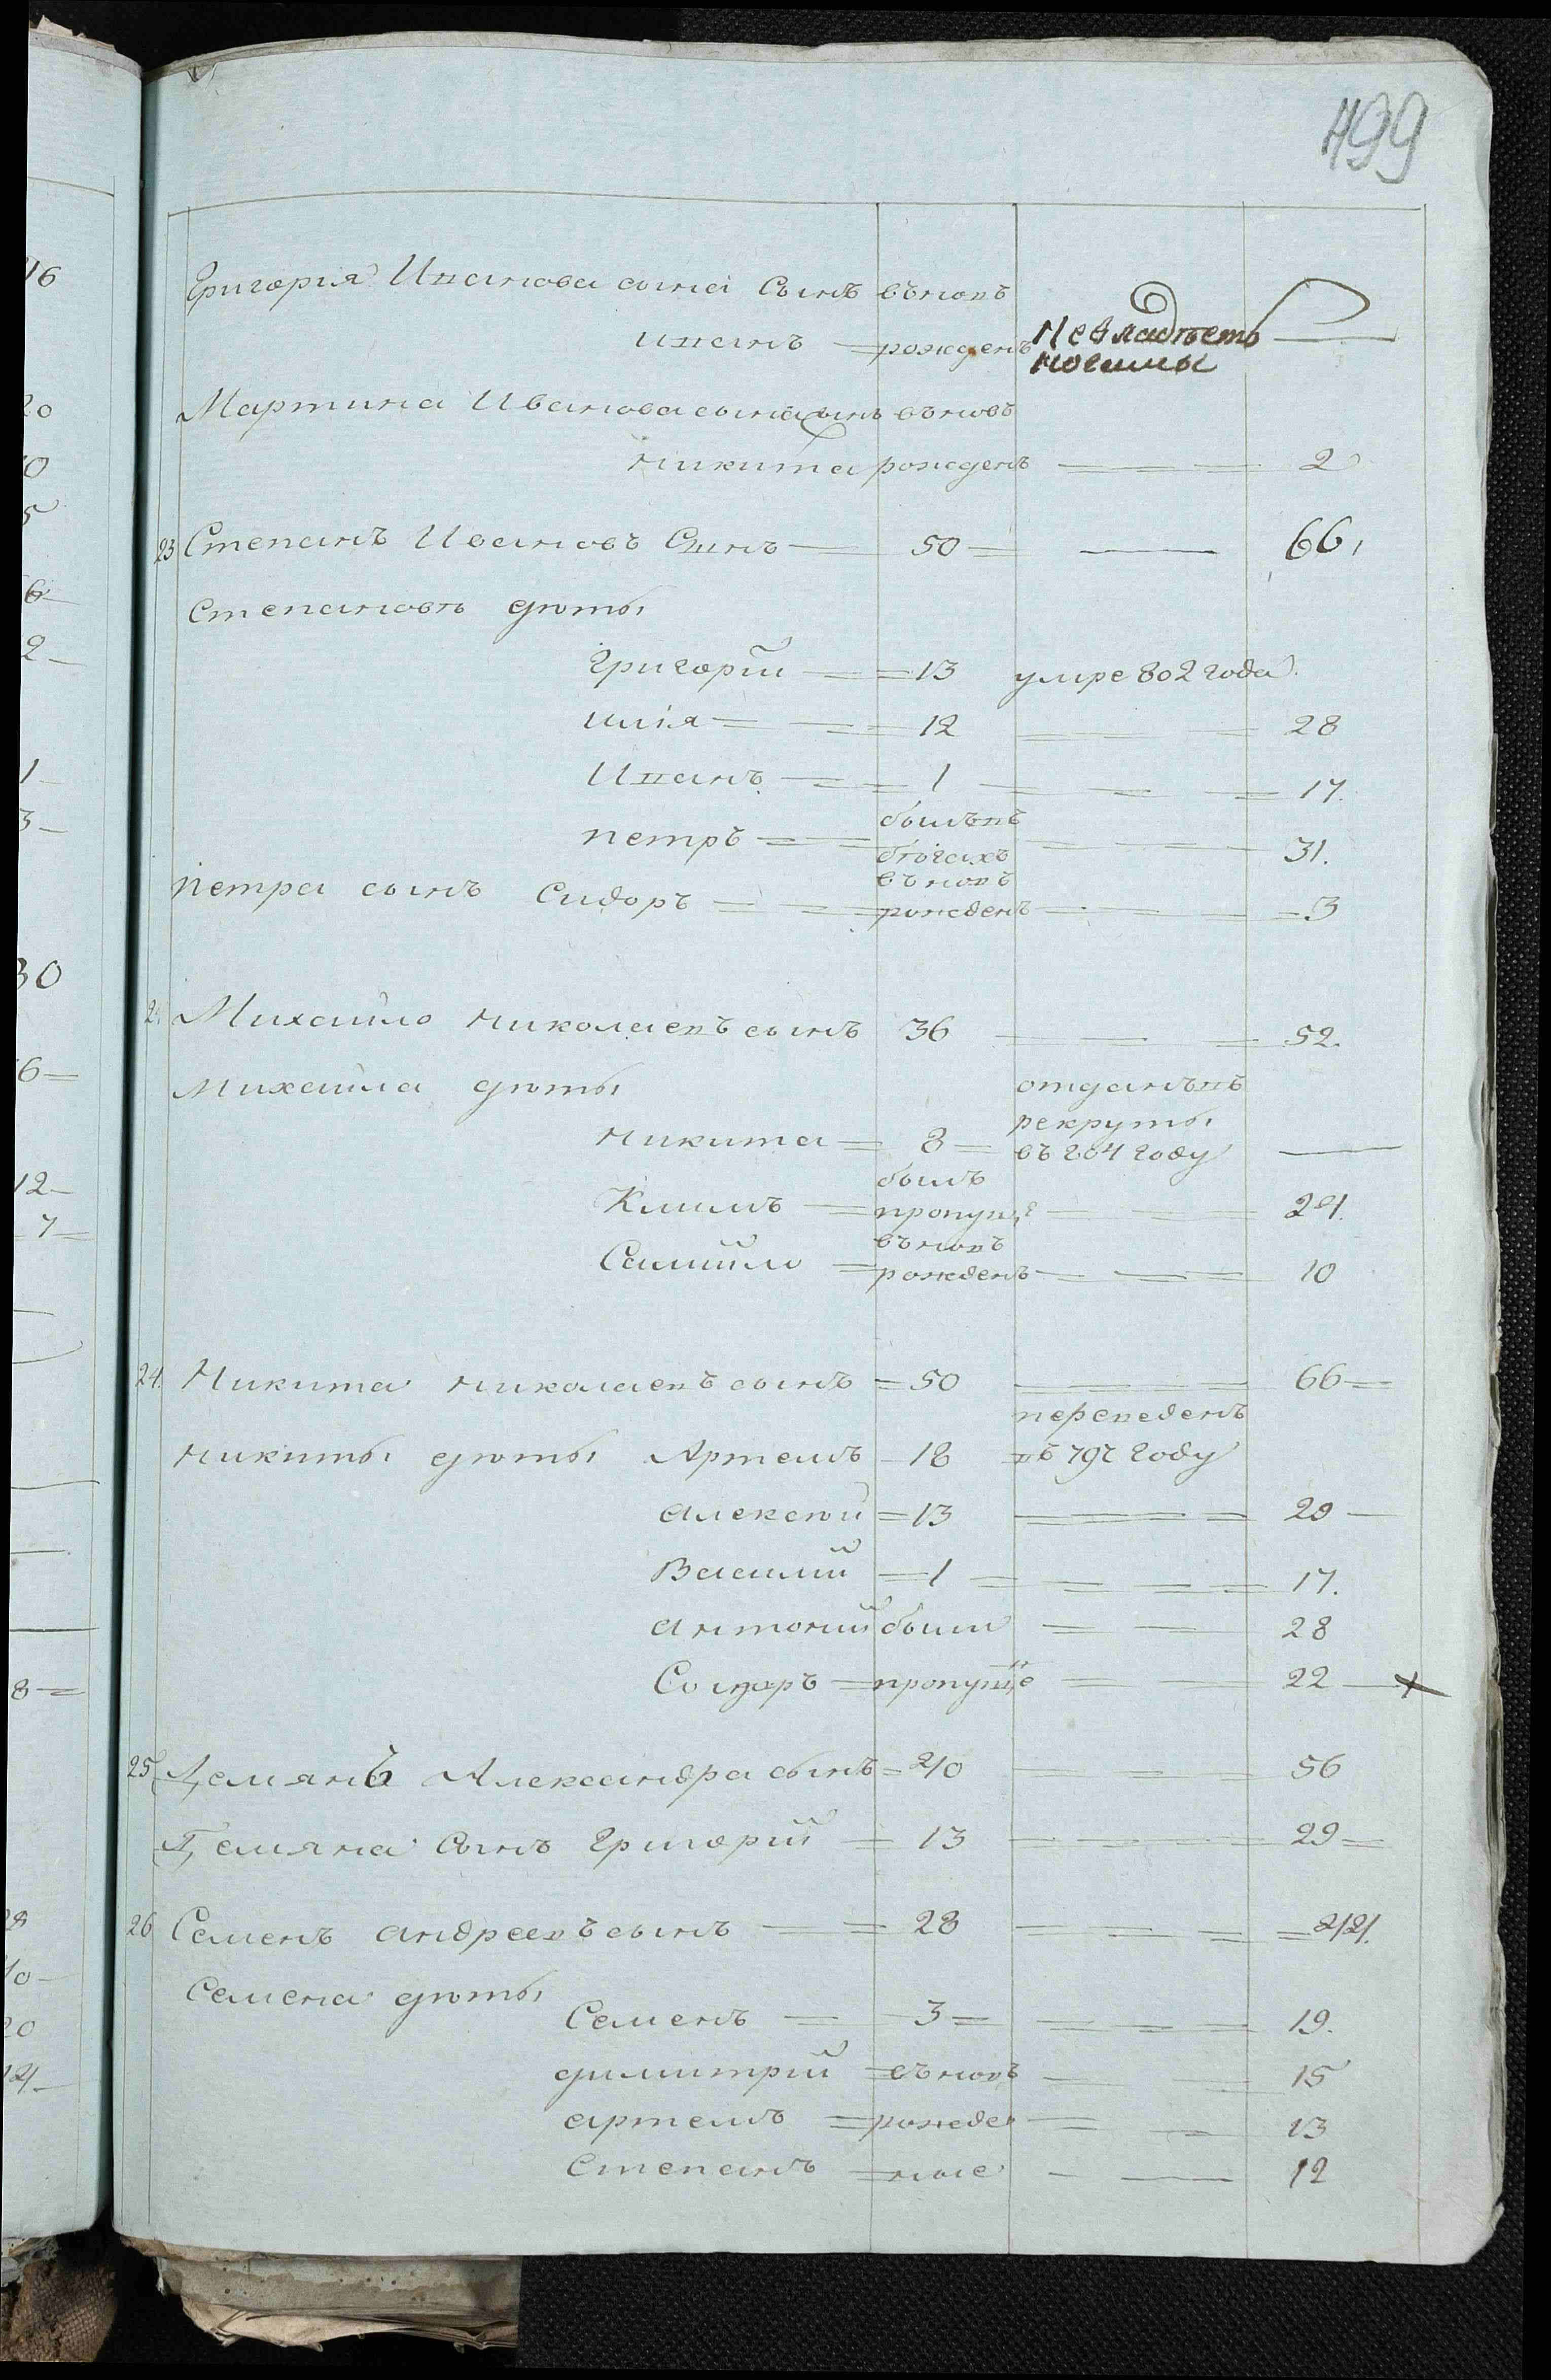 499
Григорія Иванова сына Сынъ вьновъ
иванъ рожденъ Невладѣетъ
ногами
Мартина Иванова сына сынъ вьновъ
никита рожденъ 2
23 Степанъ Ивановъ Сынъ 50 66
Степановы дѣты
Григорій 13 умре 802 года
илія 12 28
Иванъ 1 17.
былъ въ
петръ бѣгахъ 31.
вьновъ
петра сынъ Сидоръ рожденъ 3
Михайло николаевъ сынъ 36 52.
Михайла дѣты отданъ въ
рекруты
никита 8 въ 804 году
былъ
Климъ пропущ 24.
вьновъ
Самойло рожденъ 10
24. Никита николаевъ сынъ 50 66
переведенъ
никиты дѣты Артемъ 18 въ 797 году
алексѣй 13 29
Василий 1 17.
антоний были 28
пропуще 22
25 Демянъ Александра сынъ 40 56
Демяна Сынъ Григорій 13 29
26 Семенъ андреевъ сынъ 28 44.
Семена дѣты
Семенъ 3 19.
димитрий вьновъ 15
артемъ рожден 13
Степанъ ные 12
16
20
10
5
6
2
1
3
30
6
12
7
8
10
20
14